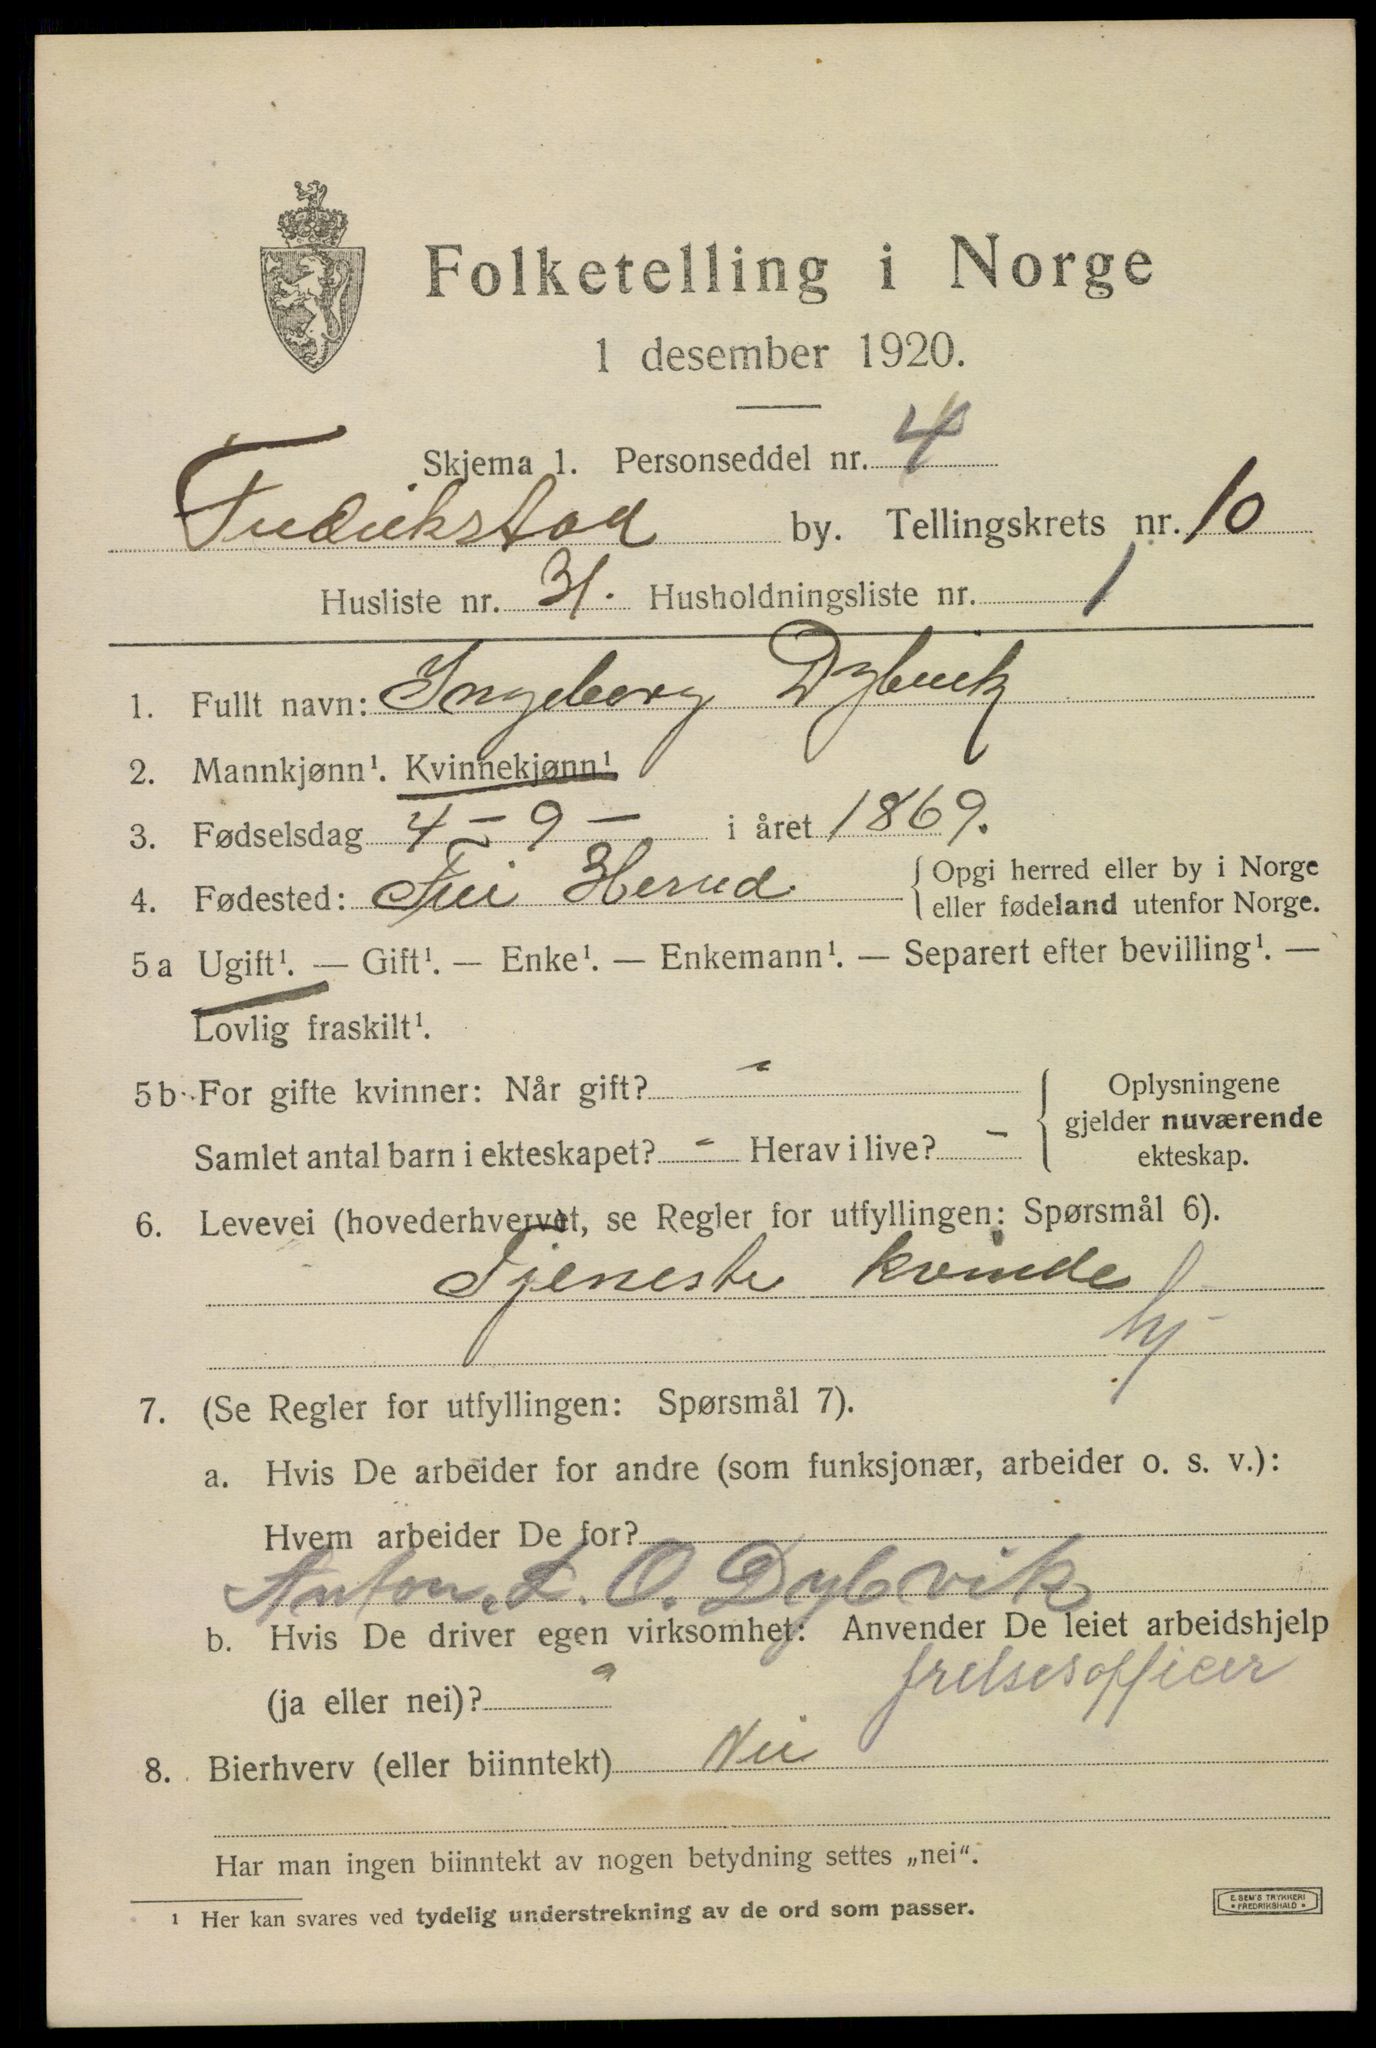 Folketelling i Norge
1 desember 1920.
Skjema 1. Personseddel nr. 4
Fredrikstad by. Tellingskrets nr. 10
Husliste nr. 31. Husholdningsliste nr. 1
1. Fullt navn: Ingeborg Dybvik
2. Mannkjønn¹. Kvinnekjønn¹
3. Fødselsdag 4 - 9 - i året 1869.
4. Fødested: Herred { Opgi herred eller by i Norge
eller fødeland utenfor Norge.
5a Ugift¹. — Gift¹. — Enke¹. — Enkemann¹. — Separert efter bevilling¹. —
Lovlig fraskilt¹.
5b For gifte kvinner: Når gift? - { Oplysningene
gjelder nuværende
ekteskap.
Samlet antal barn i ekteskapet? - Herav i live? -
6. Levevei (hovederhvervet, se Regler for utfyllingen: Spørsmål 6).
Tjeneste kvinde
hj
7. (Se Regler for utfyllingen: Spørsmål 7).
a. Hvis De arbeider for andre (som funksjonær, arbeider o. s. v.):
Hvem arbeider De for?
Anton L. O. Dybvik
b. Hvis De driver egen virksomhet: Anvender De leiet arbeidshjelp
frelsesofficer
(ja eller nei)?
8. Bierhverv (eller biinntekt) Nei
Har man ingen biinntekt av nogen betydning settes „nei“.
¹ Her kan svares ved tydelig understrekning av de ord som passer.
E. SEM'S TRYKKERI
• FREDRIKSHALD •